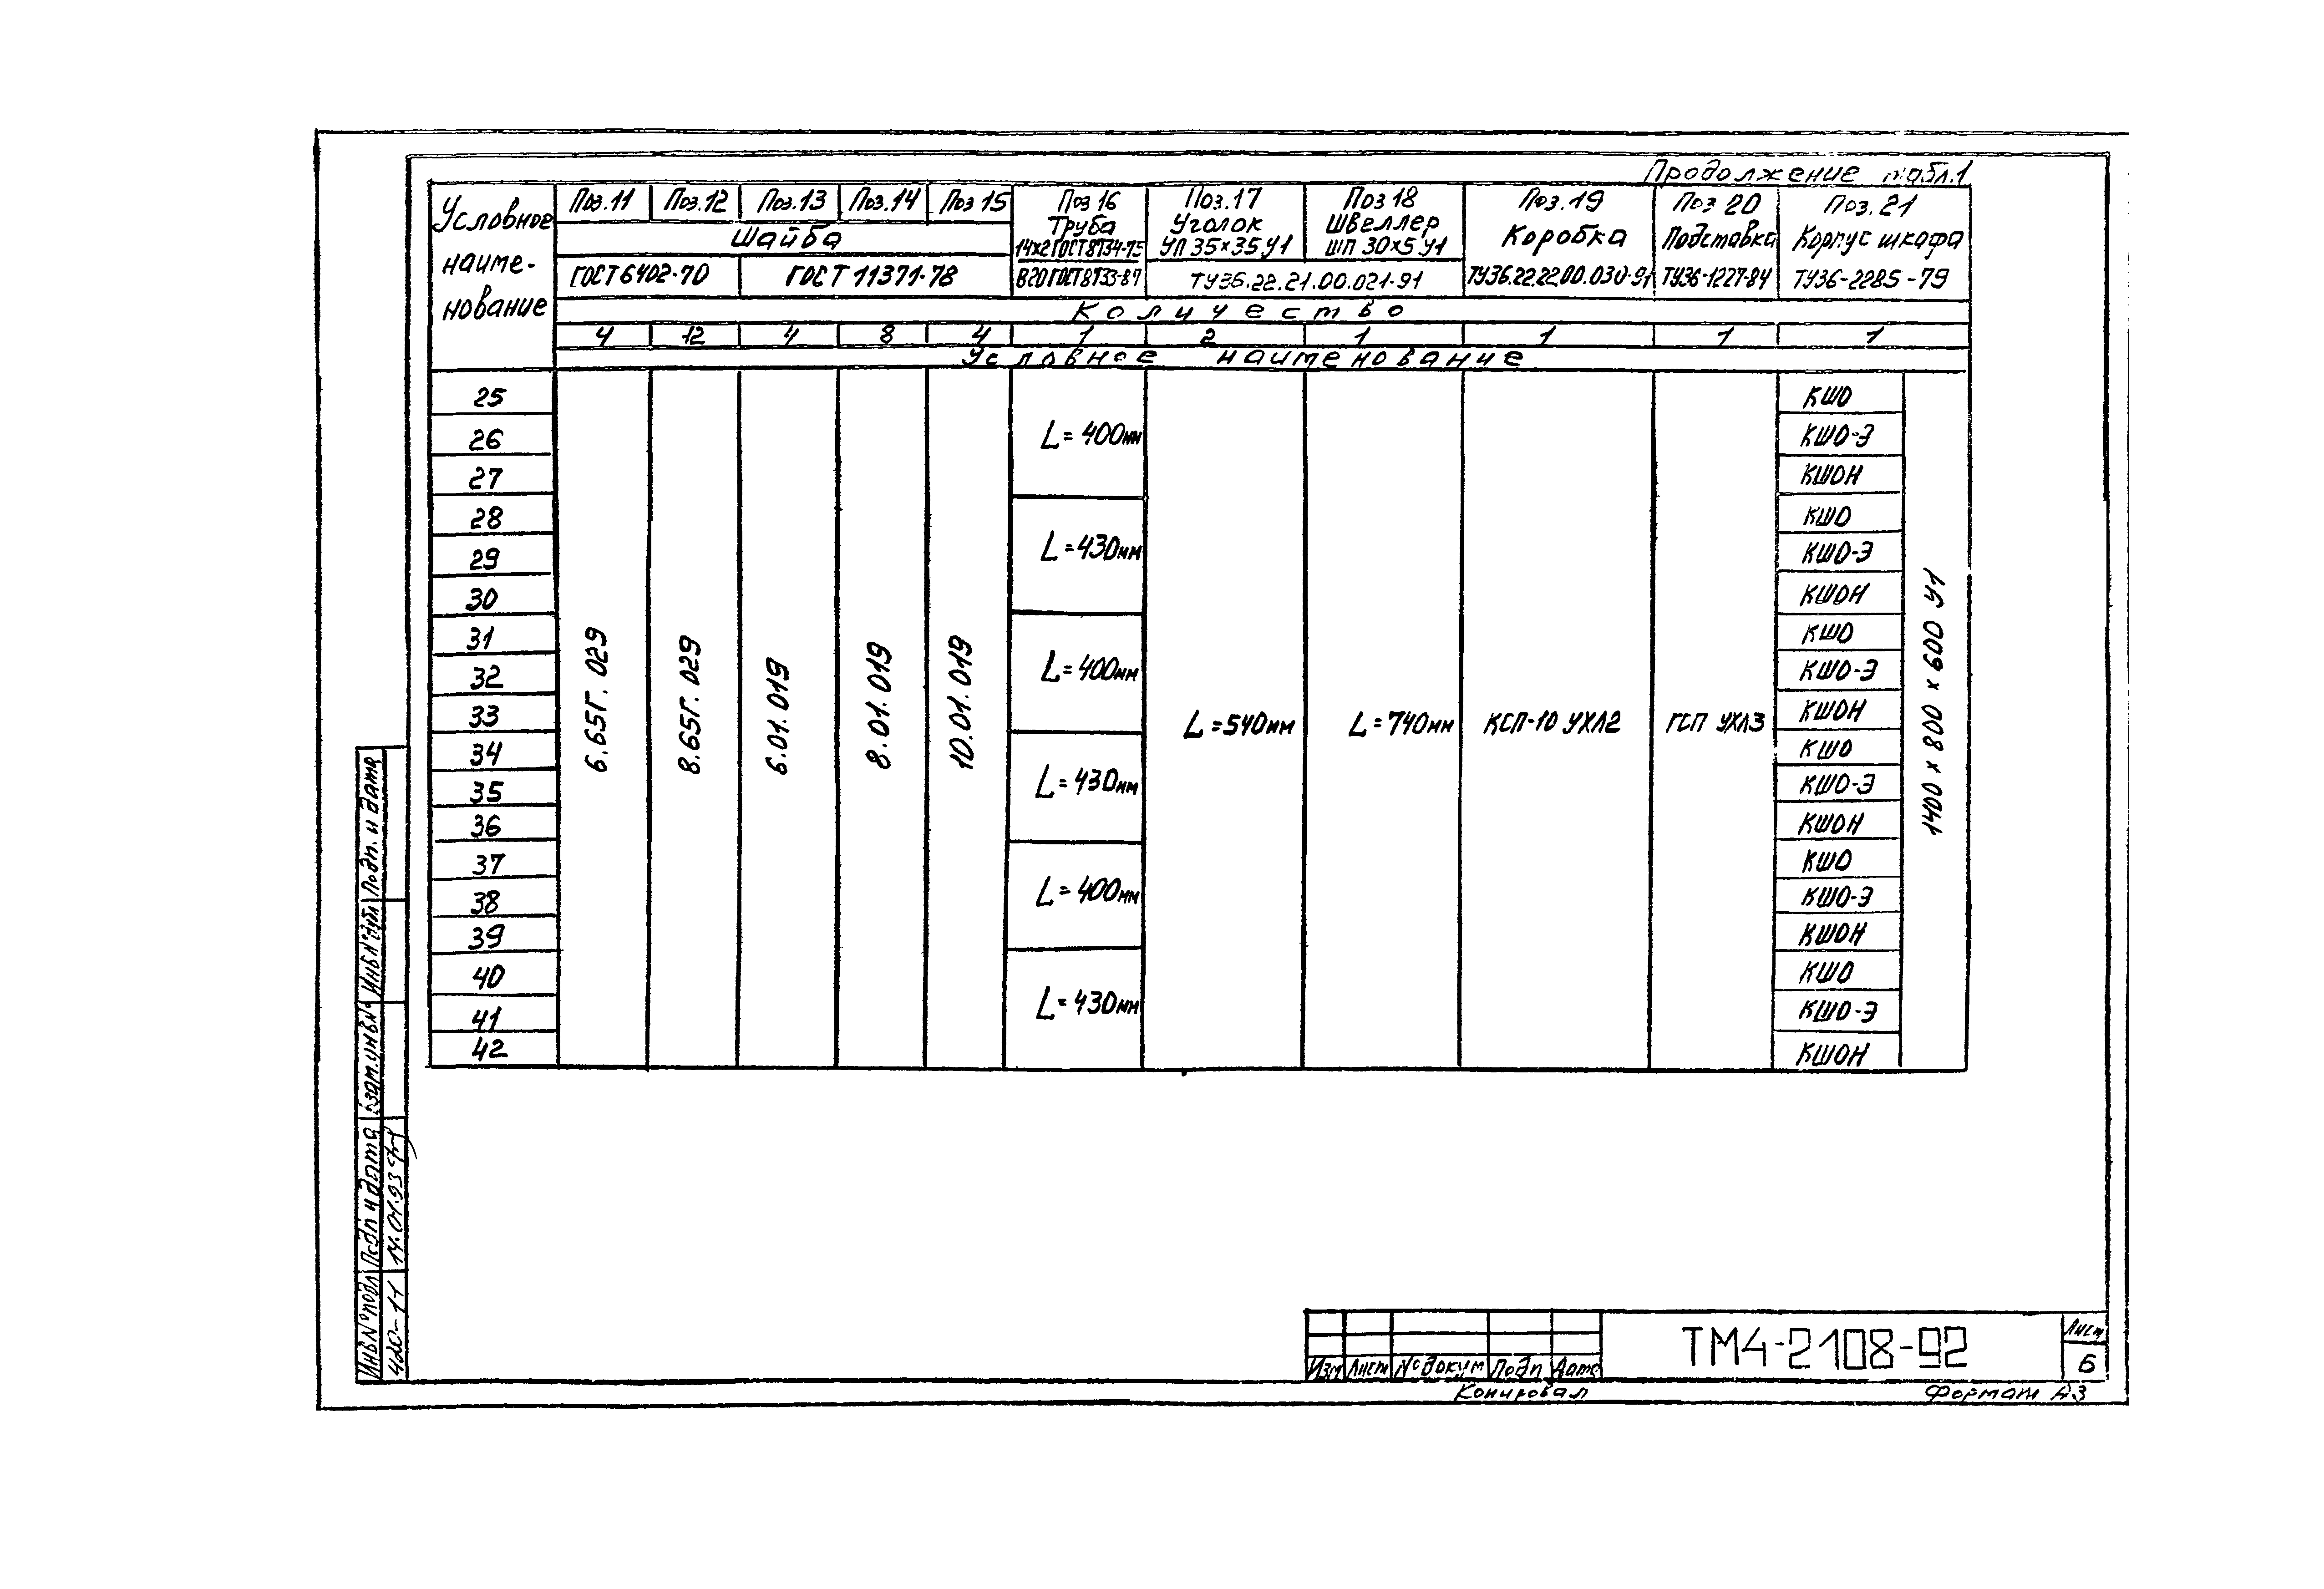 Продолжение табл.1
Условное наиме-нование
Поз.11 Поз.12 Поз.13 Поз.14 Поз 15 Поз 16 Поз.17 Поз 18 Поз.19 Поз 20 Поз.21
Шайба
Труба Уголок Швеллер Коробка Подставка Корпус шкафа
14х2 ГОСТ 8734-75 УП 35×35 У1 ШП 30×5 У1
ГОСТ 6402-70 ГОСТ 11371-78 В20 ГОСТ 8733-87 ТУ36.22.21.00.021-91 ТУ36.22.22.00.030-91 ТУ36-1227-84 ТУ36-2285-79
Количество
4 12 4 8 4 1 2 1 1 1 1
Условное наименование
25 КШО
26 L=400мм КШО-Э
27 КШОН
28 КШО
29 L=430мм КШО-Э
30 КШОН
31 КШО
32 L=400мм КШО-Э
33 КШОН
6.65Г.029 8.65Г.029 6.01.019 8.01.019 10.01.019 L=540мм L=740мм КСП-10 УХЛ2 ГСП УХЛ3 1400×800×600 У1
34 КШО
35 L=430мм КШО-Э
36 КШОН
37 КШО
38 L=400мм КШО-Э
39 КШОН
40 КШО
41 L=430мм КШО-Э
42 КШОН
Подп. и дата
Инв№дубл
Взам.инв№
Подп и дата 14.01.93
Инв№подл 420-11
ТМ4-2108-92
Лист
6
Изм Лист №докум Подп Дата
Копировал Формат А3